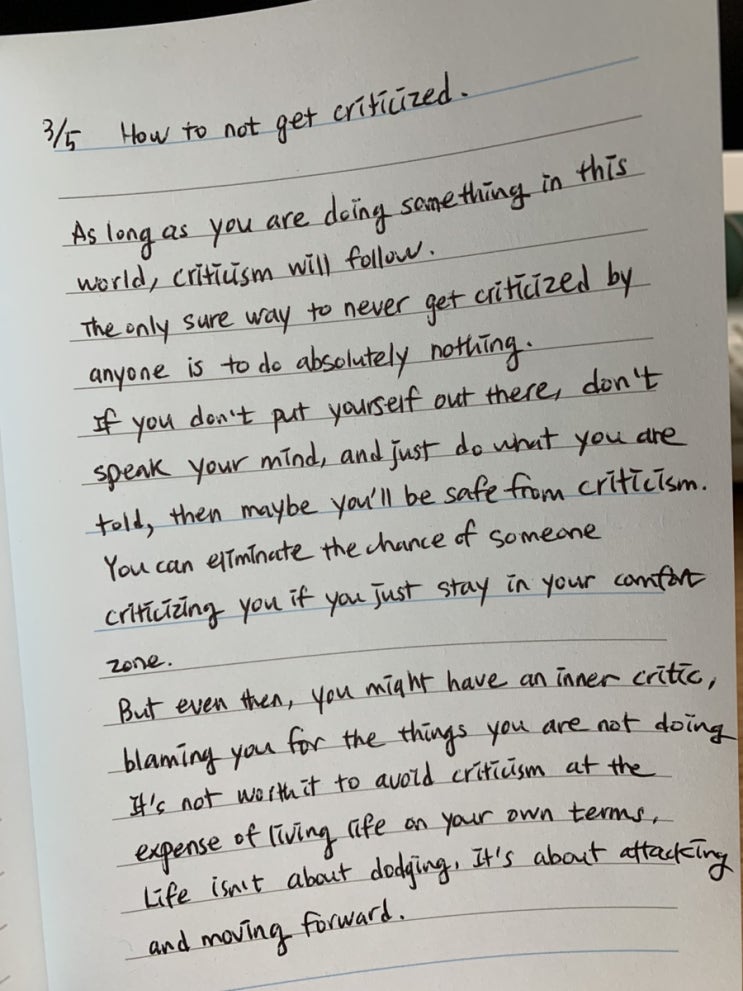 3/5 How to not get criticized.
As long as you are doing something in this
world, criticism will follow.
The only sure way to never get criticized by
anyone is to do absolutely nothing.
If you don't put yourself out there, don't
speak your mind, and just do what you are
told, then maybe you'll be safe from criticism.
You can eliminate the chance of someone
criticizing you if you just stay in your comfort
zone.
But even then, you might have an inner critic,
blaming you for the things you are not doing
It's not worth it to avoid criticism at the
expense of living life on your own terms.
Life isn't about dodging. It's about attacking
and moving forward.